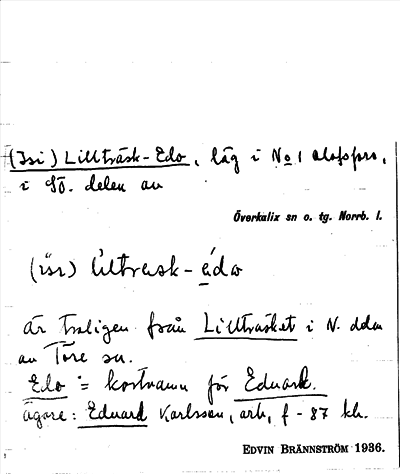 (Isi) Lillträsk-Edo, låg i No 1 Olofsfors,
i SÖ. delen av
Överkalix sn o. tg. Norrb. l.
är troligen från Lillträsket i N. delen
av Töre sn.
Edo = kortnamn för Eduard.
ägare: Eduard Karlsson, arb, f -87 kh.
EDVIN BRÄNNSTRÖM 1936.